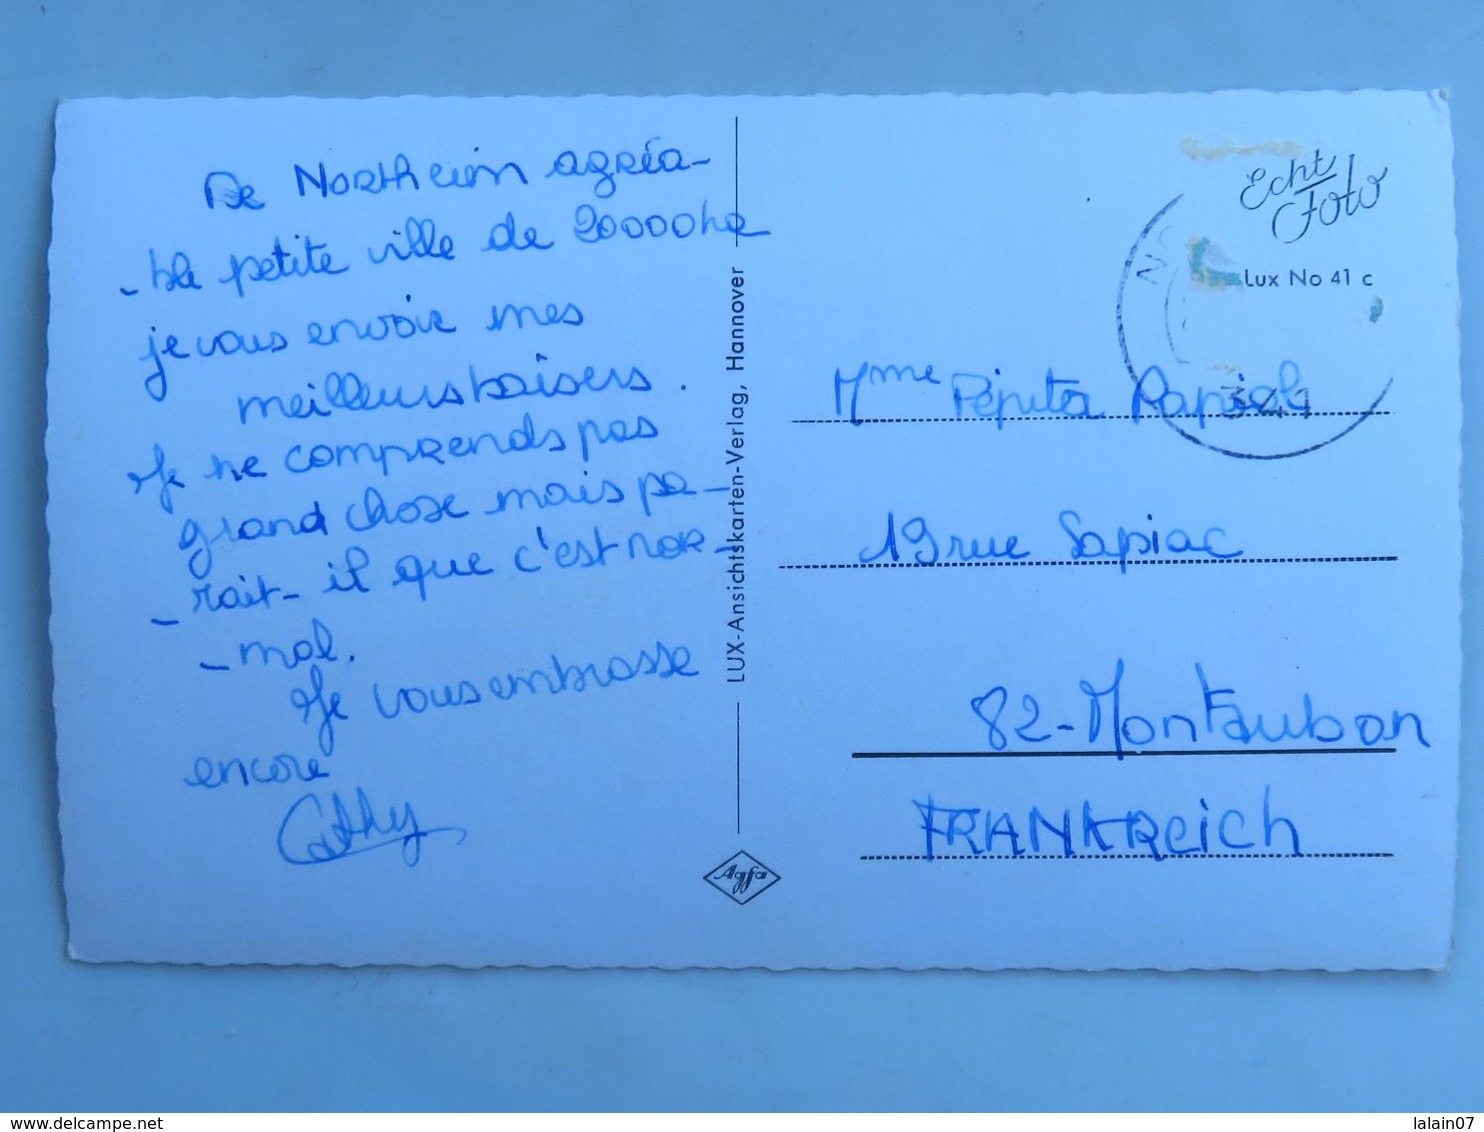 De Northeim agréa-
-ble petite ville de 20000ha
je vous envoie mes
meilleurs baisers.
Je ne comprends pas
grand chose mais pa-
-rait-il que c'est nor-
-mal.
Je vous embrasse
encore
Cathy
LUX-Ansichtskarten-Verlag, Hannover
Agfa
Echt
Foto
Lux No 41 c
NO
341
Mme Pépita
19 rue Sapiac
82-Montauban
FRANKReich
delcampe.net
lalain07